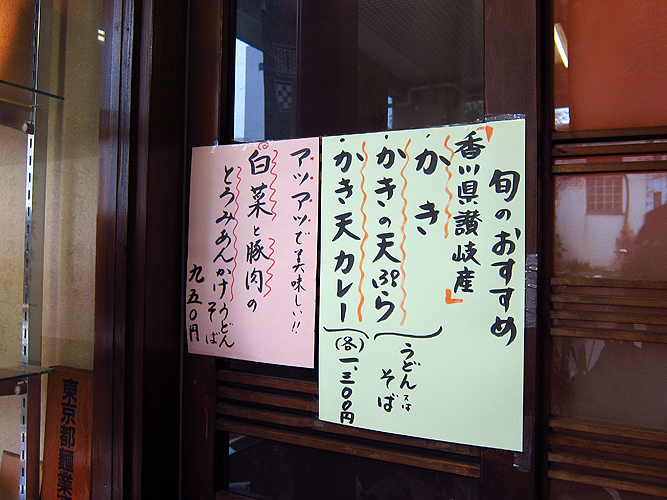 旬のおすすめ
「香川県讃岐産」
・かき
・かきの天ぷら
・かき天カレー
うどん又は
そば
(各)一、三〇〇円
アツアツで美味しい!!
白菜と豚肉の
とろみあんかけうどん
そば
九五〇円
東京都麺業